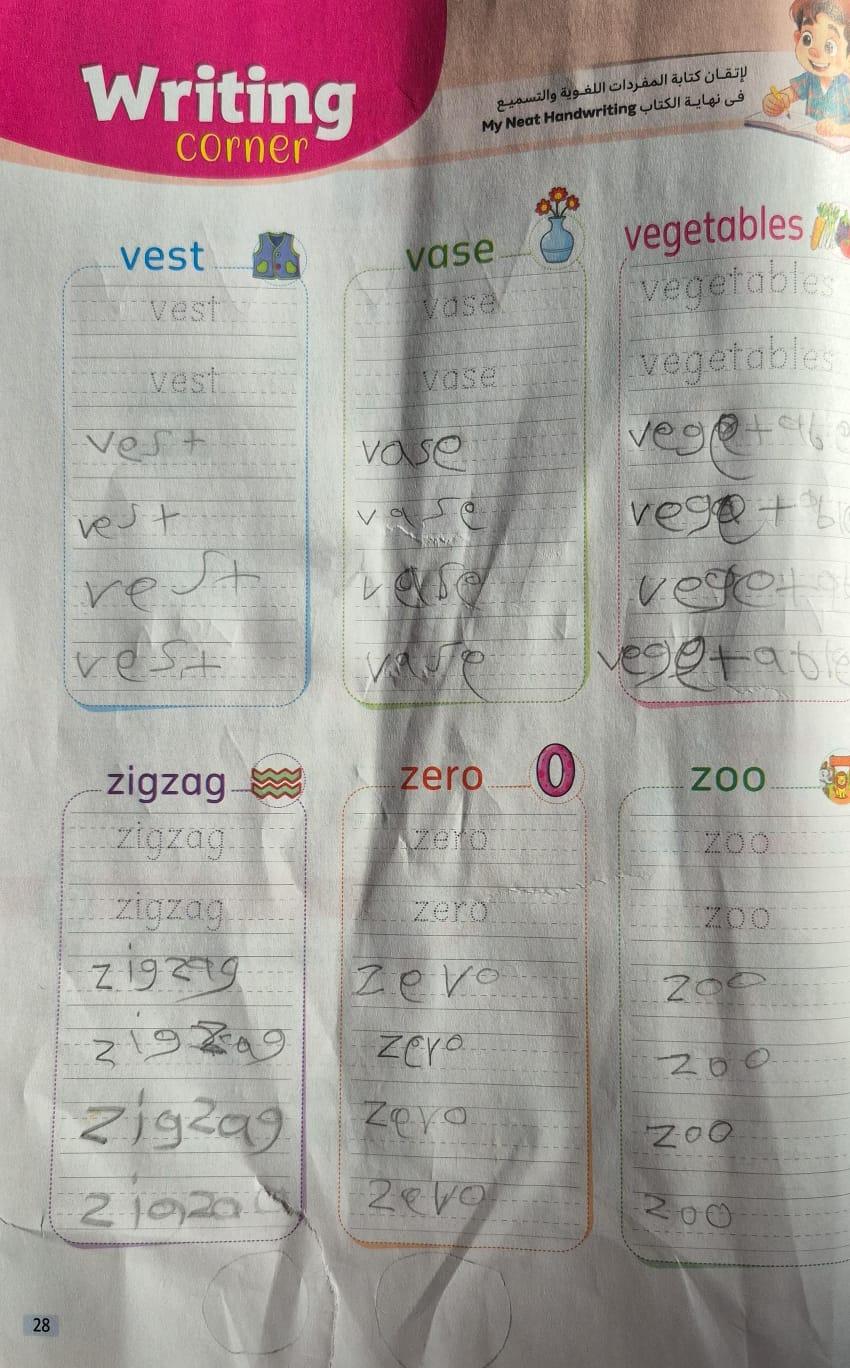 Writing
corner
لإتقان كتابة المفردات اللغوية والتسميع
فى نهاية الكتاب My Neat Handwriting
vest
vest
vest
vest
vest
vest
vest
vase
vase
vase
vase
vase
vase
vase
vegetables
vegetables
vegetables
zigzag
zigzag
zigzag
zigzag
zigzag
zigzag
zero
zero
zero
zero
zero
zero
zero
zoo
zoo
zoo
zoo
zoo
zoo
zoo
28